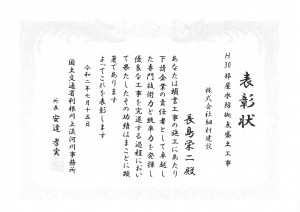 表彰状
H30部屋水防拠点盛土工事
株式会社細村建設
長島栄二殿
あなたは頭書工事の施工にあたり
下請企業の責任者として卓越し
た専門技術力と統率力を発揮し
優良な工事を完遂する過程におい
て果たしたその功績はまことに顕
著であります
よってこれを表彰します
令和二年七月十五日
国土交通省利根川上流河川事務所
所長 安達孝実